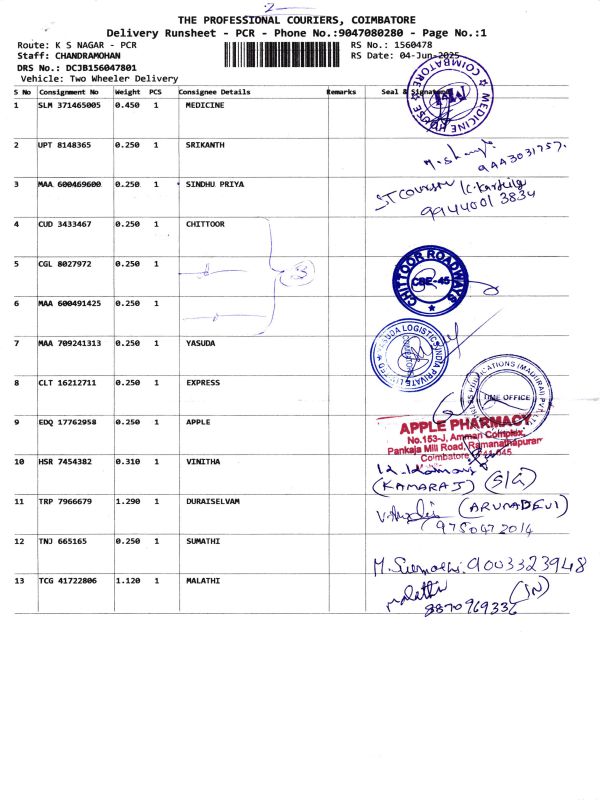 2
THE PROFESSIONAL COURIERS, COIMBATORE
Delivery Runsheet - PCR - Phone No.:9047080280 - Page No.:1
Route: K S NAGAR - PCR
RS No.: 1560478
Staff: CHANDRAMOHAN
RS Date: 04-Jun-2025
DRS No.: DCJB156047801
Vehicle: Two Wheeler Delivery
S No Consignment No Weight PCS Consignee Details Remarks Seal & Signature
1 SLM 371465005 0.450 1 MEDICINE
MEDICINE HOUSE COIMBATORE
2 UPT 8148365 0.250 1 SRIKANTH
9443031757.
3 MAA 600469600 0.250 1 SINDHU PRIYA
ST Courier
9944001 3834
4 CUD 3433467 0.250 1 CHITTOOR
5 CGL 8027972 0.250 1
3
CHITTOOR ROADWAYS
CBE-45
6 MAA 600491425 0.250 1
7 MAA 709241313 0.250 1 YASUDA
YASUDA LOGISTIC INDIA PRIVATE LIMITED
8 CLT 16212711 0.250 1 EXPRESS
PUBLICATIONS (MADURAI) PVT. LTD
TIME OFFICE
9 EDQ 17762958 0.250 1 APPLE
APPLE PHARMACY
No.153-J, Amman Complex,
Pankaja Mill Road, Ramanathapuram
Coimbatore
10 HSR 7454382 0.310 1 VINITHA
(KAMARAJ) (S/G)
11 TRP 7966679 1.290 1 DURAISELVAM
(ARUNADEVI)
9750472014
12 TNJ 665165 0.250 1 SUMATHI
M. Sumathi. 9003323948
13 TCG 41722806 1.120 1 MALATHI
malathi (IN)
8870769336